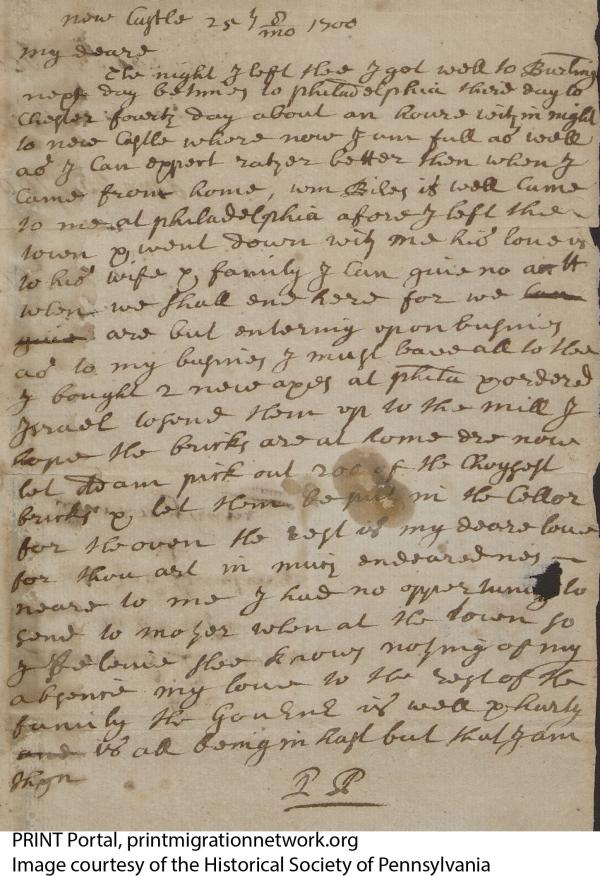 new Castle 25th 8/mo 1700
my deare
The night I left thee I got well to Burling
next day betimes to philadelphia third day to
Chester fourth day about an houre within night
to new Castle where now I am full as well
as I Can expect rather better then when I
Came from home, wm Biles is well Came
to me at philadelphia afore I left the
town & went down with me his love is
to his wife & family I Can give no actt
when we shall end here for we can
give are but entering upon busines
as to my busines I must leave all to thee
I bought 2 new axes at phila & ordered
Israel to send them up to the mill I
hope the bricks are at home ere now
let Adam pick out 200 of the Choysest
bricks & let them be put in the Cellor
for the oven the rest is my deare love
for thou art in much endearednes
neare to me I had no oppertunity to
send to mother when at the town so
I Beleive shee knows nothing of my
absence my love to the rest of the
family the Govern is well & harty
and is all being in hast but that I am
thyn
P P
PRINT Portal, printmigrationnetwork.org
Image courtesy of the Historical Society of Pennsylvania